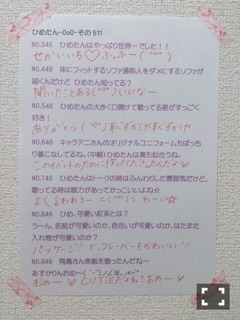 ひめたん-0o0-その 511
NO.346　ひめたんはやっぱり世界一でした！！
せかいいち♡ふっふー
NO.446　体にフィットするソファ通称人をダメにするソファが
届くんだけど ひめたん知ってる？
聞いたことある いいなー
NO.546　ひめたんの大きく口開けて歌ってる姿すっごく
好き！
ありがとう
NO.646　キャラアニさんのオリジナルユニフォームもばっち
り着こなしてるね。(中略) ひめたんは黒も似合うね。
NO.746　ひめたんはトークの時はふんわりした雰囲気だけど、
歌ってる時は眼力があってかっこいいよね☆
よく言われるー わーい☆
NO.846　ひめ、可愛い紅茶とは？
うーん、名前が可愛いのか、色合いが可愛いのか、はたまた
入れ物が可愛いのか？
パッケージ！と、フレーバーもかわいい!!
NO.946　飛鳥さん表紙を飾ったんだね～
あすかりんおめ～
おめー CUTiEだよねおめー